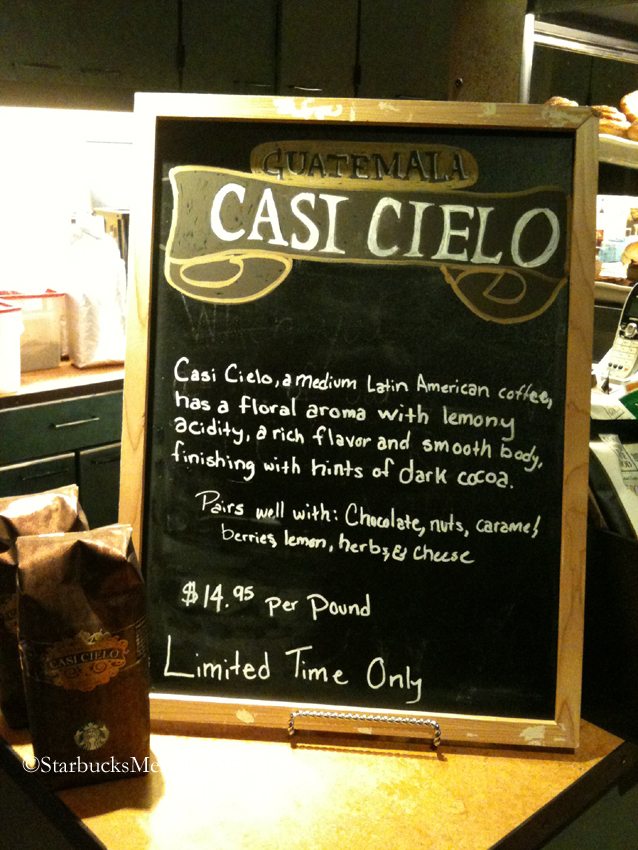 GUATEMALA
CASI CIELO
Casi Cielo, a medium Latin American coffee,
has a floral aroma with lemony
acidity, a rich flavor and smooth body,
finishing with hints of dark cocoa.
Pairs well with: Chocolate, nuts, caramel,
berries, lemon, herbs, & cheese
$14.95 per Pound
Limited Time Only
CASI CIELO
©StarbucksMe